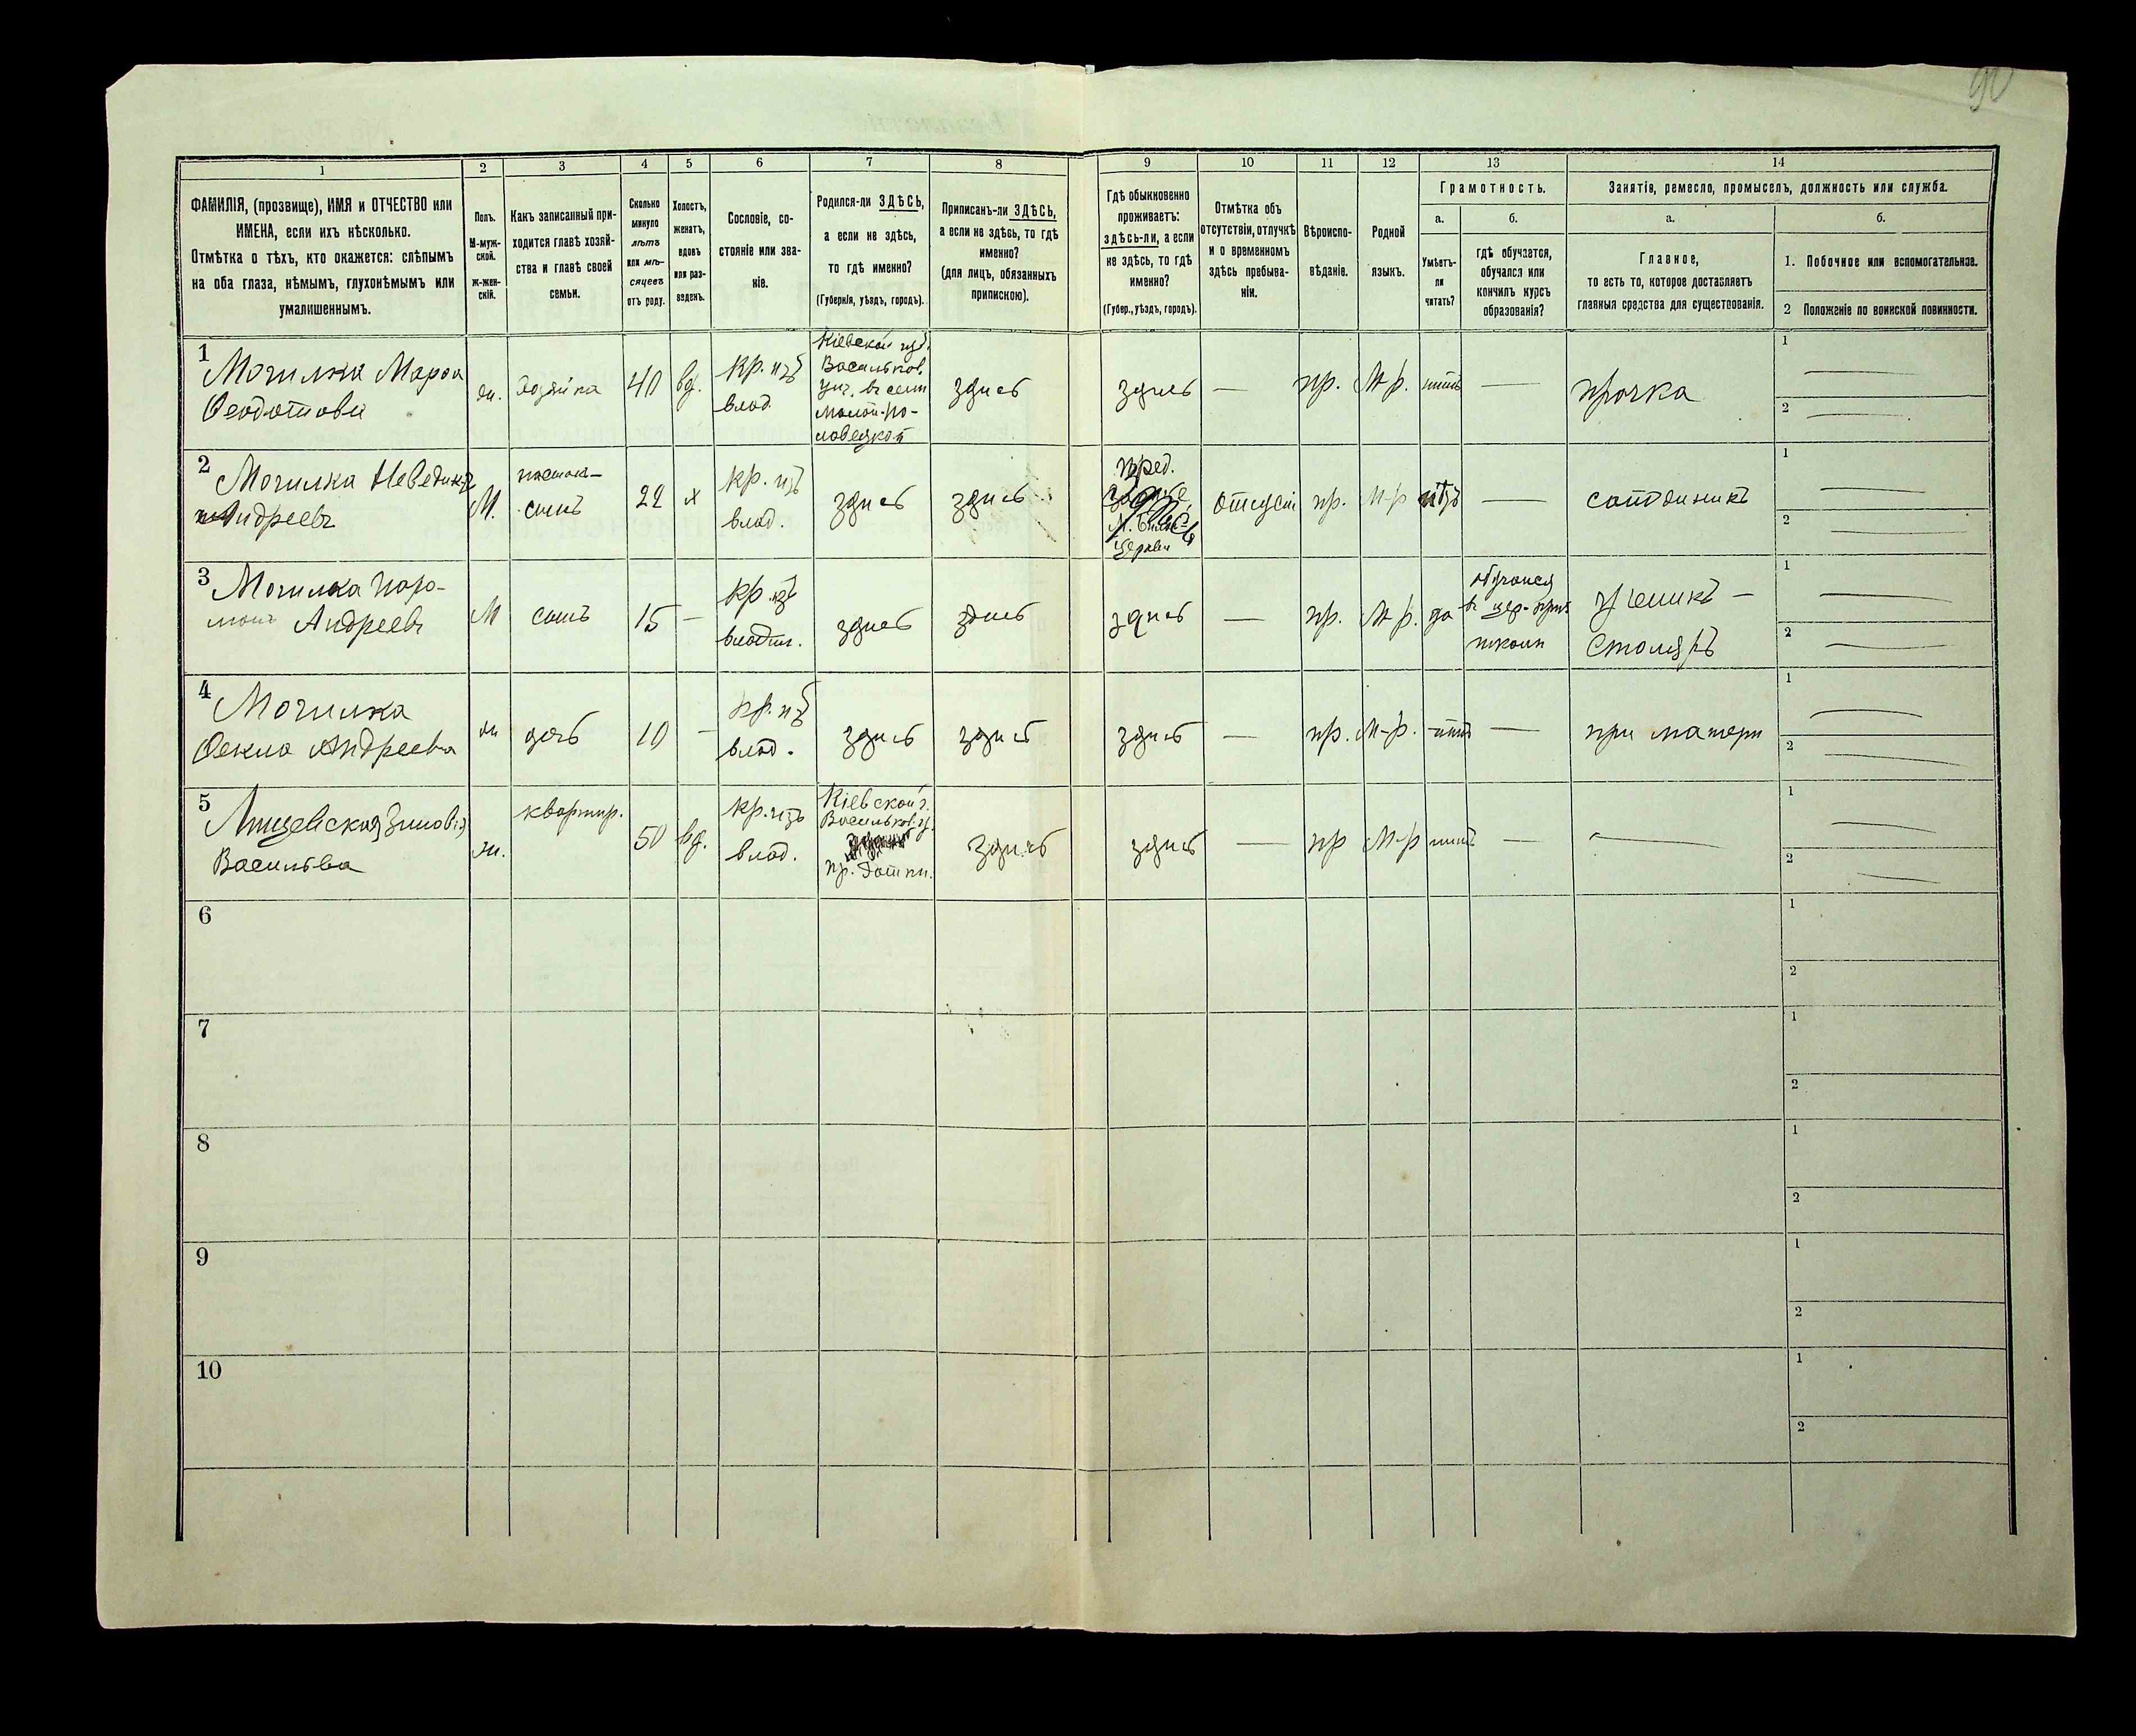 90
1 2 3 4 5 6 7 8 9 10 11 12 13 14
ФАМИЛІЯ, (прозвище), ИМЯ и ОТЧЕСТВО или
ИМЕНА, если ихъ нѣсколько.
Отмѣтка о тѣхъ, кто окажется: слѣпымъ
на оба глаза, нѣмымъ, глухонѣмымъ или
умалишеннымъ.
Полъ.
М-муж-
ской.
Ж-жен-
скій.
Какъ записанный при-
ходится главѣ хозяй-
ства и главѣ своей
семьи.
Сколько
минуло
лѣтъ
или мѣ-
сяцевъ
отъ роду.
Холостъ,
женатъ,
вдовъ
или раз-
веденъ.
Сословіе, со-
стояніе или зва-
ніе.
Родился-ли ЗДѢСЬ,
а если не здѣсь,
то гдѣ именно?
(Губернія, уѣздъ, городъ).
Приписанъ-ли ЗДѢСЬ,
а если не здѣсь, то гдѣ
именно?
(для лицъ, обязанныхъ
припискою).
Гдѣ обыкновенно
проживаетъ:
здѣсь-ли, а если
не здѣсь, то гдѣ
именно?
(Губер., уѣздъ, городъ).
Отмѣтка объ
отсутствіи, отлучкѣ
и о временномъ
здѣсь пребыва-
ніи.
Вѣроиспо-
вѣданіе.
Родной
языкъ.
Грамотность.
а.
Умѣетъ-
ли
читать?
б.
гдѣ обучается,
обучался или
кончилъ курсъ
образованія?
Занятія, ремесло, промыселъ, должность или служба.
а.
Главное,
то есть то, которое доставляетъ
главныя средства для существованія.
б.
1. Побочное или вспомогательное.
2 Положеніе по воинской повинности.
1
Могилка Марѳа
Ѳеодотова
ж.
хозяйка
40
вд.
кр. изъ
влад.
Кіевской губ.
Васильков.
уѣз. въ селѣ
Малой-По-
ловецкой
здѣсь
здѣсь
—
пр.
М-р.
нѣтъ
—
прачка
1
2
2
Могилка
Андреевъ
М.
сынъ
22
х
кр. изъ
влад.
здѣсь
здѣсь
Церкви
пр.
М-р
—
1
2
3
Могилка
Андреевъ
М
сынъ
15
—
кр. изъ
влад.
здѣсь
здѣсь
здѣсь
—
пр.
М-р.
да
обучался
въ цер-прих
школѣ
Ученикъ —
Столяръ
1
2
4
Могилка
Ѳекла Андреева
ж
дочь
10
—
кр. изъ
влад.
здѣсь
здѣсь
здѣсь
—
пр.
М-р.
нѣтъ
—
при матери
1
2
5
Зиновія
Васильева
ж.
квартир.
50
вд.
кр. изъ
влад.
Кіевской г.
Васильков. у.
здѣсь
здѣсь
—
пр
М-р
нѣтъ
—
—
1
2
6
1
2
7
1
2
8
1
2
9
1
2
10
1
2